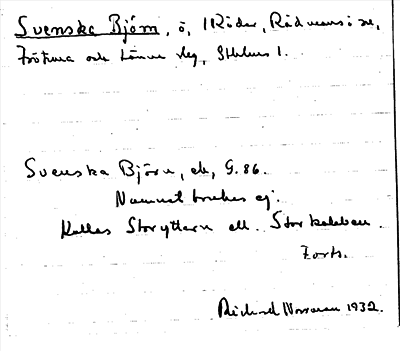 Svenska Björn, ö, i Räder, Rådmansö sn,
Frötuna och Länna slg, Sthlms l.
Svenska Björn, ek, G. 86.
Namnet brukas ej.
Kallas Storyttern ell.
Forts.
Richard Norrman 1932.